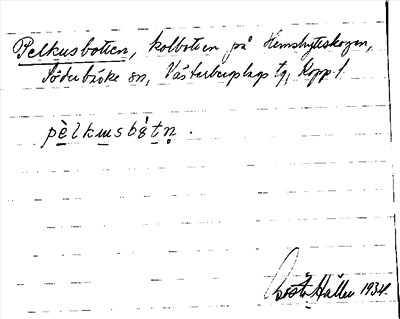 Pelkusbotten, kolbotten på Hemshyttskogen,
Söderbärke sn, Västerbergslags tg, Kopp. l.
pèlkusbo̊tn.
Gösta Hallen 1934.